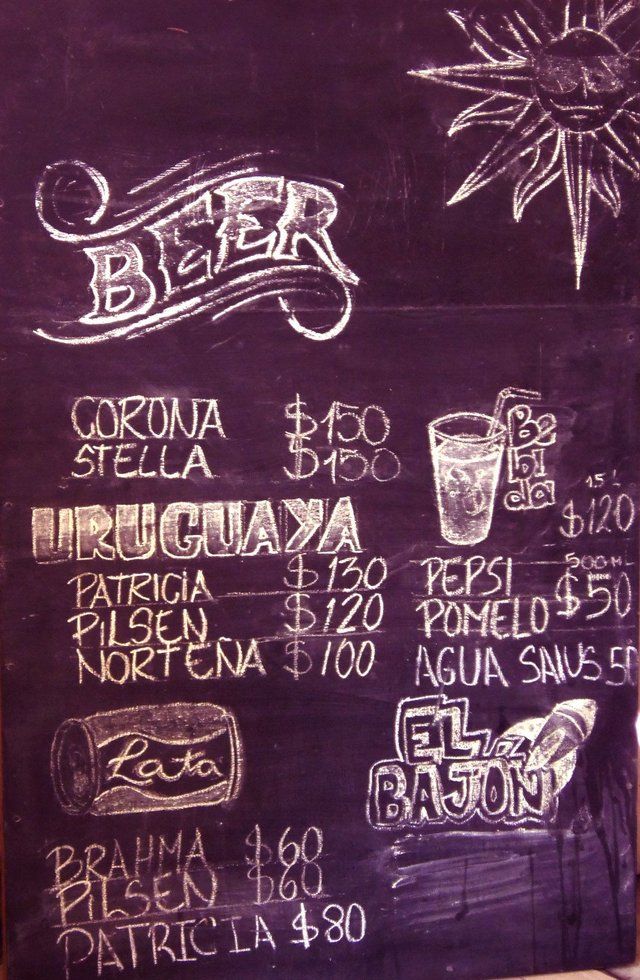 BEER
CORONA $150
STELLA $150
URUGUAYA
PATRICIA $130
PILSEN $120
NORTEÑA $100
Lata
BRAHMA $60
PILSEN $60
PATRICIA $80
Bebida
1.5 L
$120
500 M
PEPSI $50
POMELO
AGUA SALUS 50
EL
BAJON